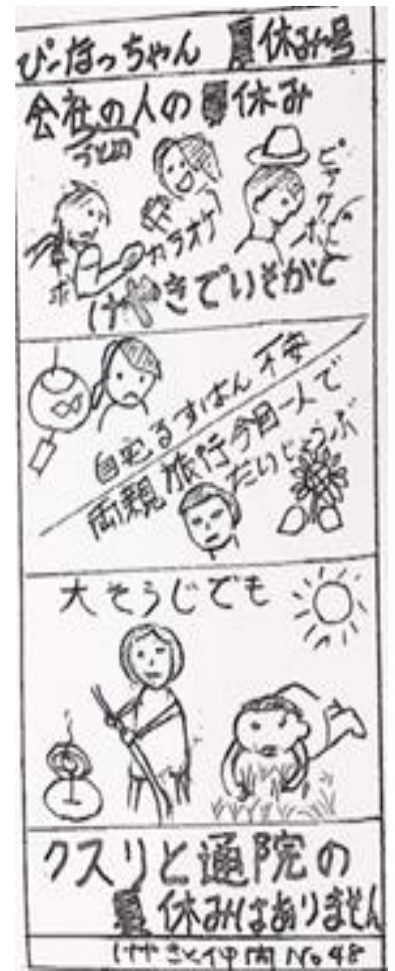 ぴーなっちゃん 夏休み号
会社の人の夏休み
カラオケ
ボ
けやきでいそがし
自宅るすばん 不安
両親旅行今日一人で
だいじょうぶ
大そうじでも
クスリと通院の
夏休みはありません
けやきと仲間 No48